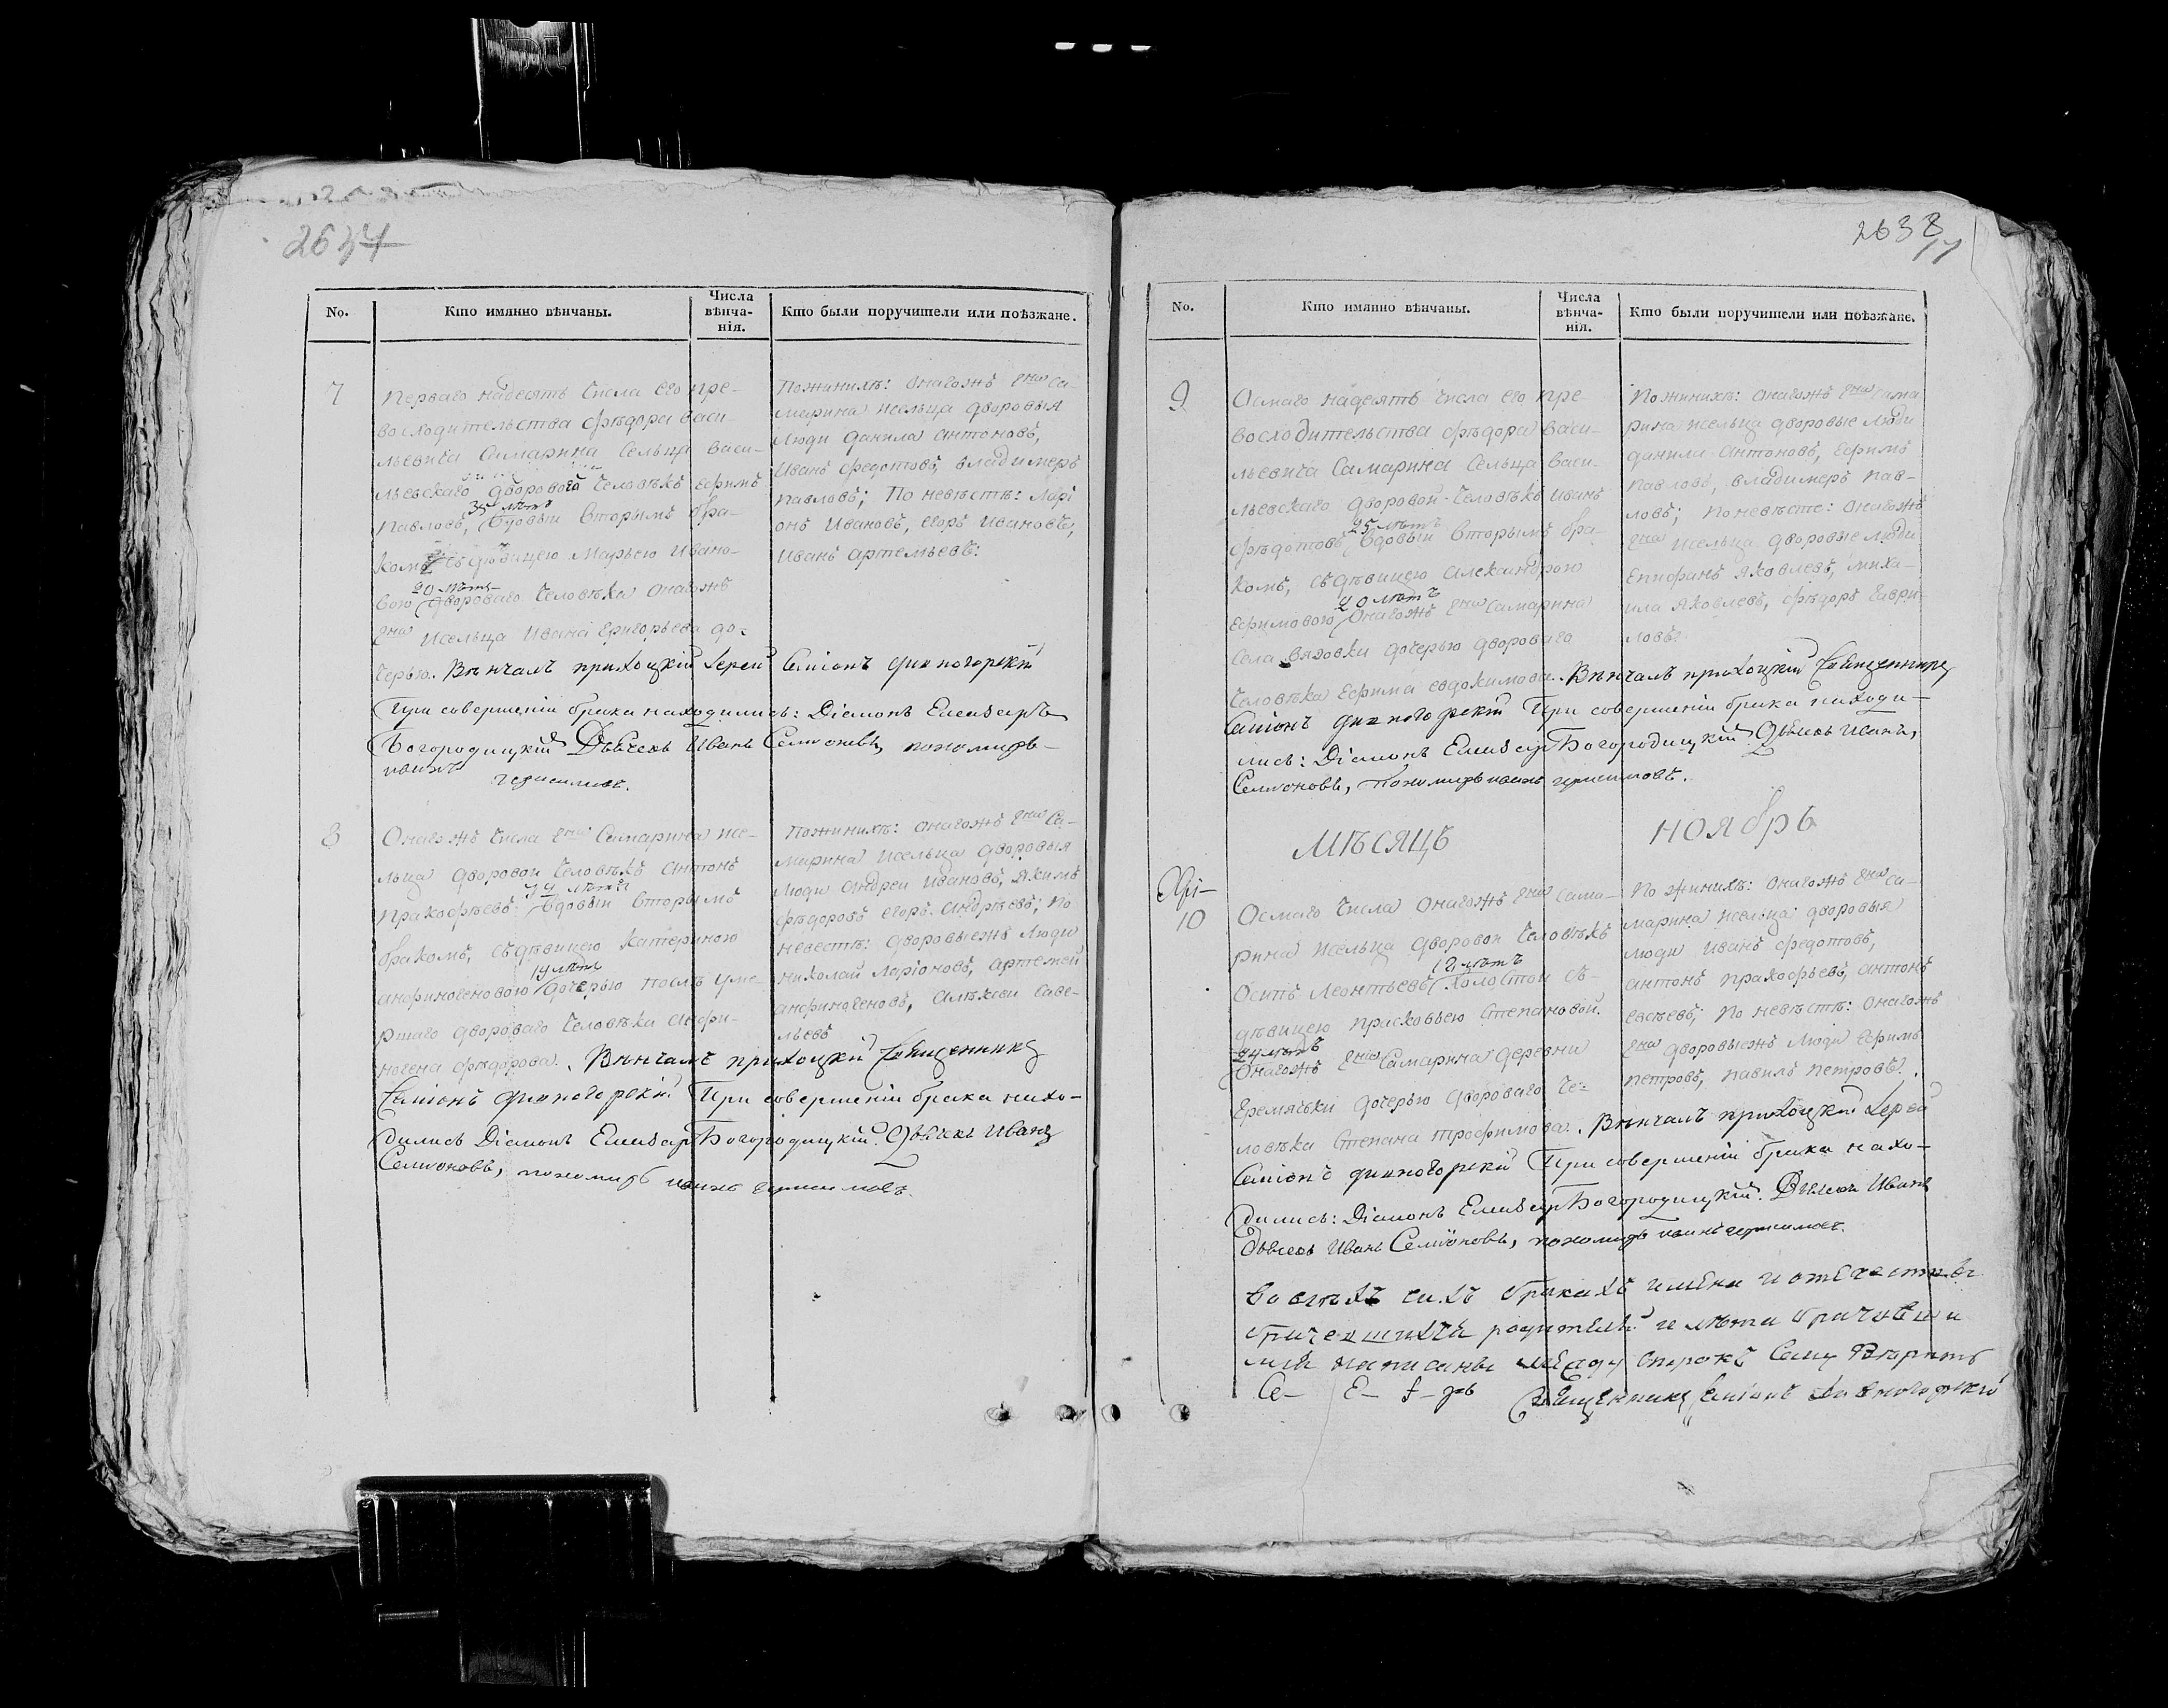 2637
No.
Кто имянно вѣнчаны.
Числа вѣнча-нія.
Кто были поручители или поѣзжане.
7
Перваго надесять числа его пре-
восходительства фѣдора васи-
льевича Самарина сельца васи-
льевскаго дворовой человѣкъ ефимъ
35 лѣтъ
павловъ, вдовый вторымъ бра-
комъ съ дѣвицею марьею ивано-
20 лѣтъ
вою двороваго человѣка онагожъ
гна исельца ивана григорьева до-
черью. Вѣнчалъ приходцкій Іерей Симіонъ дивногорскій
При совершеніи брака находились: Діаконъ Елиазаръ
Богородицкій Дьячекъ Иванъ Семионовъ, пономарь
иванъ
герасимовъ.
Поженихѣ: онагожъ гна са-
марина исельца дворовыя
люди данила антоновъ,
иванъ федотовъ, владимеръ
павловъ; По невѣстѣ: ларі
онъ ивановъ, егоръ ивановъ,
иванъ артемьевъ:
8
Онагожъ числа гна Самарина исе-
льца дворовой человѣкъ антонъ
прокофьевъ вдовый вторымъ
бракомъ, съ дѣвицею катериною
19 лѣтъ
анфиногеновою дочерью послѣ уме-
ршаго двороваго человѣка анфи-
ногена фѣдорова. Вѣнчалъ приходцкій священникъ
Симіонъ дивногорскій При совершеніи брака нахо-
дились Діаконъ Елиазаръ Богородицкій. Дьячекъ Иванъ
Семионовъ, пономарь иванъ герасимовъ.
Поженихѣ: онагожъ гна Са-
марина исельца дворовыя
люди андреи ивановъ, якимъ
фѣдоровъ егоръ андрѣевъ; по
невестѣ: дворовыежъ люди
николай ларіоновъ, артемей
анфиногеновъ, алѣксеи саве-
льевъ
2638
17
No.
Кто имянно вѣнчаны.
Числа вѣнча-нія.
Кто были поручители или поѣзжане.
9
Осмаго надесять числа его пре-
восходительства фѣдора васи-
льевича Самарина сельца васи-
льевскаго дворовой человѣкъ иванъ
25 лѣтъ
фѣдотовъ вдовый вторымъ бра-
комъ, съ дѣвицею александрою
20 лѣтъ
ефимовою онагожъ гна самарина
села вязовки дочерью двороваго
человѣка ефима евдокимова. Вѣнчалъ приходцкій священникъ
Симіонъ дивногорскій При совершеніи брака находи-
лись: Діаконъ Елиазаръ Богородицкій Дьячекъ Иванъ
Семионовъ, пономарь иванъ герасимовъ.
Поженихѣ: онагожъ гна сама
рина исельца дворовые люди
данила антоновъ, ефимъ
павловъ, владимеръ пав-
ловъ; поневѣсте: онагожъ
гна исельца дворовые люди
епифанъ яковлевъ, миха-
ила яковлевъ, фѣдоръ гаври
ловъ.
мѣсяцъ ноябрь
10
Осмаго числа онагожъ гна сама-
рина исельца дворовой человѣкъ
осипъ леонтьевъ холостой съ
дѣвицею прасковьею степановой.
онагожъ гна Самарина деревни
еремячки дочерью двороваго че-
ловѣка степана трофимова. Вѣнчалъ приходцкій Іерей
Симіонъ дивногорскій При совершеніи брака нахо-
дились: Діаконъ Елиазаръ Богородицкій. Дьячекъ Иванъ
Дьячекъ Иванъ Семионовъ, пономарь иванъ герасимовъ.
По женихѣ: онагожъ гна са-
марина исельца дворовыя
люди иванъ федотовъ,
антонъ прокофьевъ, антонъ
евсѣевъ; по невѣстѣ: онагожъ
гна дворовыежъ люди ефимъ
петровъ, павилъ петровъ.
Во всѣхъ сихъ бракахъ имена и отечества
родителей и лѣта
написаны между строкъ Сему Вѣрить
Священникъ Симіонъ Дивногорскій